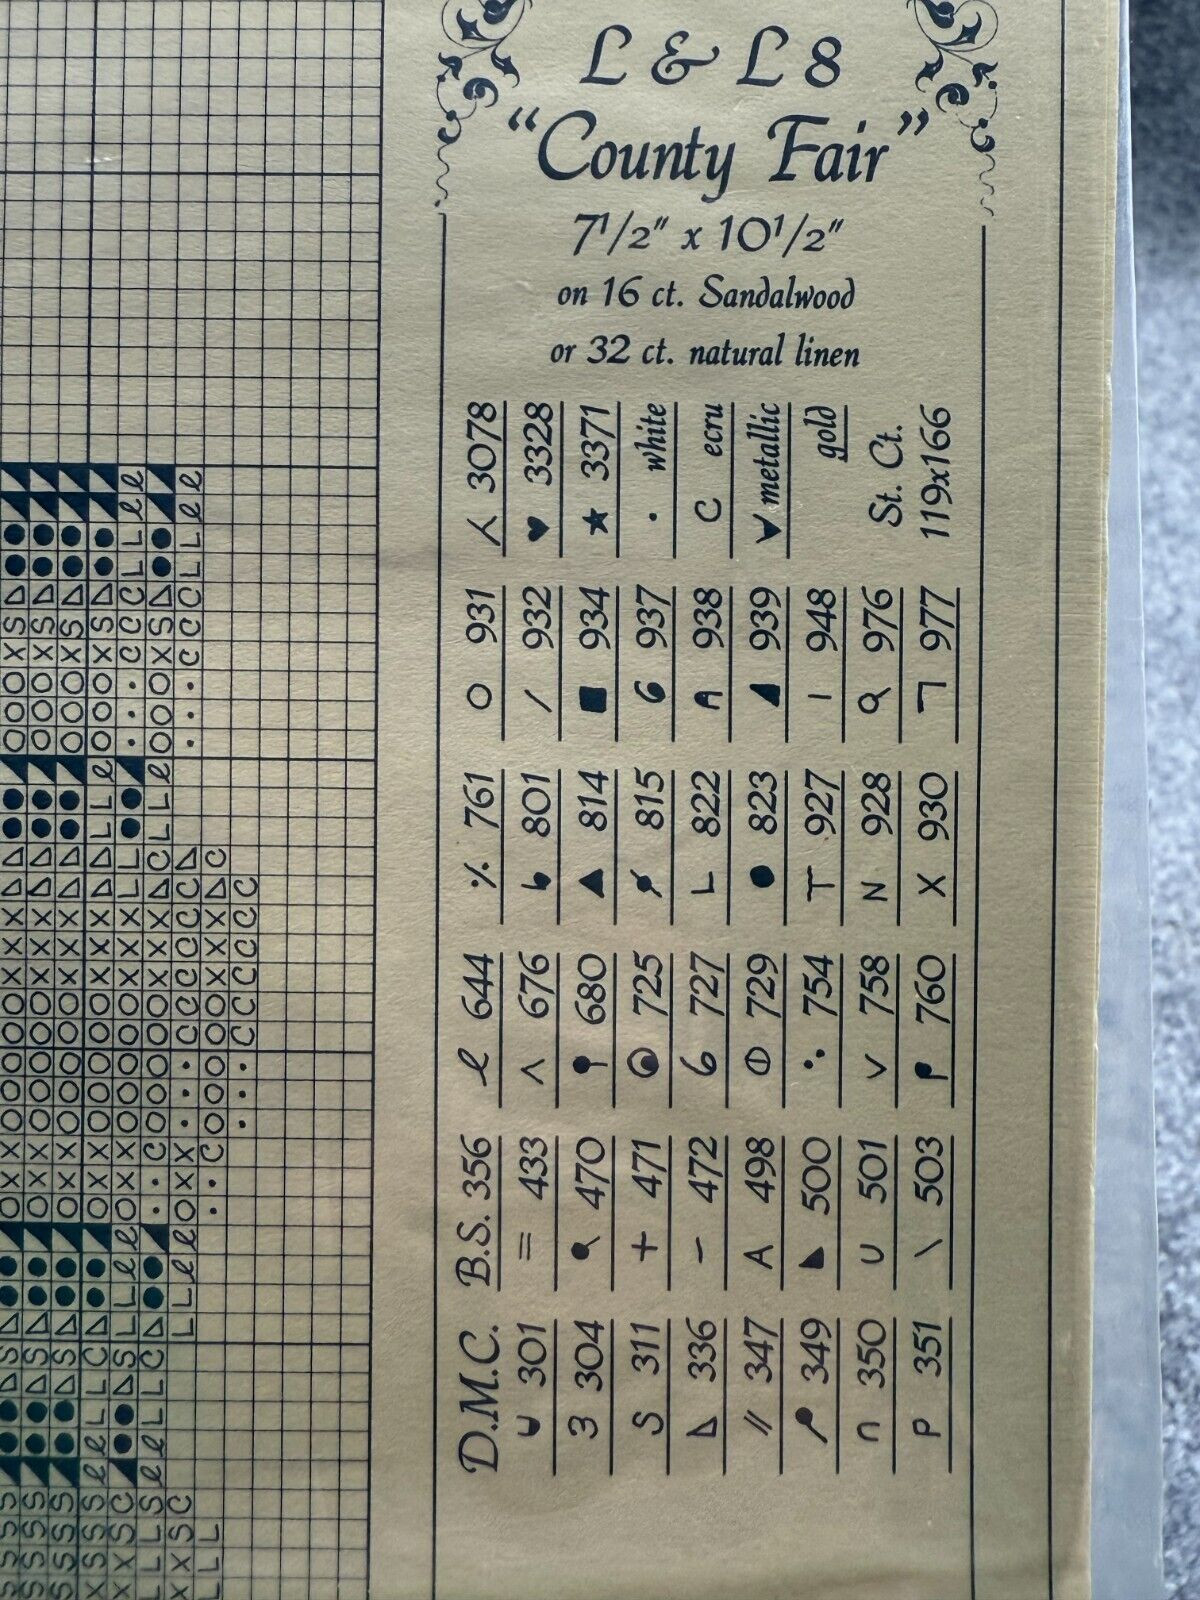 L & L 8
"County Fair"
7 1/2" x 10 1/2"
on 16 ct. Sandalwood
or 32 ct. natural linen
D.M.C.
301
3 304
S 311
336
// 347
349
∩ 350
P 351
B.S. 356
= 433
470
+ 471
- 472
A 498
500
U 501
\ 503
ℓ 644
^ 676
680
725
6 727
729
754
V 758
760
٪ 761
801
▲ 814
815
L 822
● 823
T 927
N 928
X 930
O 931
/ 932
■ 934
937
938
939
I 948
976
977
3078
♥ 3328
★ 3371
· white
C ecru
metallic
gold
St. Ct.
119x166